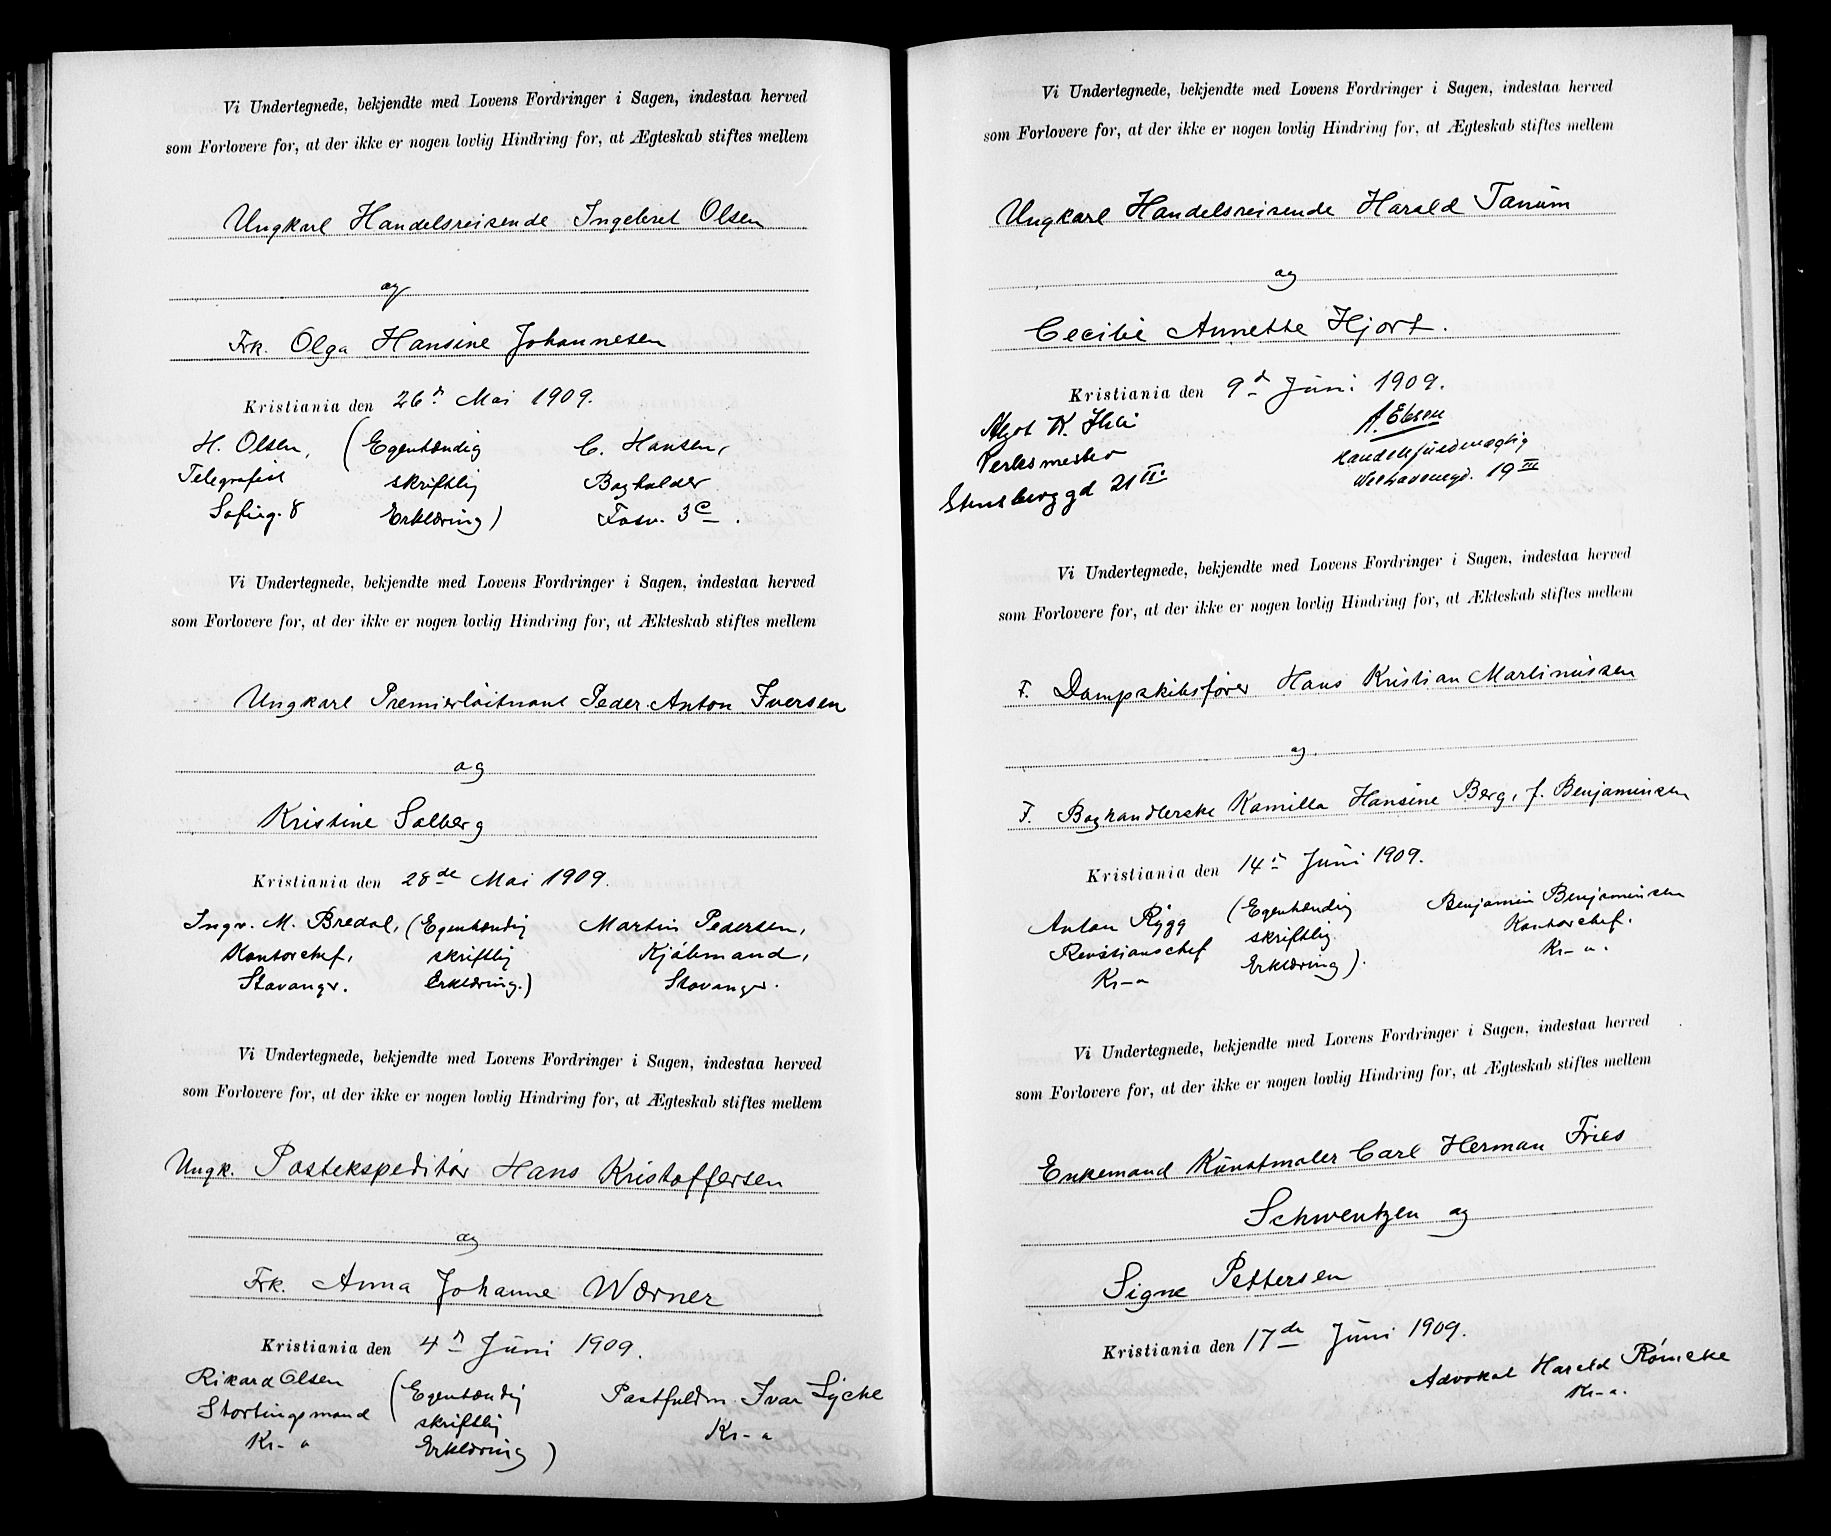 Vi Undertegnede, bekjendte med Lovens Fordringer i Sagen, indestaa herved
som Forlovere for, at der ikke er nogen lovlig Hindring for, at Ægteskab stiftes mellem
Ungkarl Handelsreisende Ingebret Olsen
og
Frk. Olga Hansine Johannesen
Kristiania den 26d Mai 1909.
H. Olsen, (Egenhændig C. Hansen,
Telegrafist skriftlig Bogholder
Sofieg. 8 Erklæring) Fosv. 3c.
Vi Undertegnede, bekjendte med Lovens Fordringer i Sagen, indestaa herved
som Forlovere for, at der ikke er nogen lovlig Hindring for, at Ækteskab stiftes mellem
Ungkarl Premierløitnant Peder Anton Iversen
og
Kristine Solberg
Kristiania den 28de Mai 1909.
Ingv. M. Bredal, (Egenhændig Martin Pedersen,
Kontorchef, skriftlig Kjøbmand,
Stavanger. Erklæring.) Stavanger.
Vi Undertegnede, bekjendte med Lovens Fordringer i Sagen, indestaa herved
som Forlovere for, at der ikke er nogen lovlig Hindring for, at Ægteskab stiftes mellem
Ungk. Postekspeditør Hans Kristoffersen
og
Frk. Anna Johanne Wærner
Kristiania den 4d Juni 1909.
Rikard Olsen (Egenhændig Postfuldm. Ivar Lycke
Stortingsmand skriftlig Kr-a
Kr-a Erklæring)
Vi Undertegnede, bekjendte med Lovens Fordringer i Sagen, indestaa herved
som Forlovere for, at der ikke er nogen lovlig Hindring for, at Ægteskab stiftes mellem
Ungkarl Handelsreisende Harald Tanum
og
Cecilie Annette Hjort.
Kristiania den 9d Juni 1909.
K. A. Ebsen
Verksmester Handelsfuldmægtig
Stensberggd 21 II. Welhavensgd. 19 III
Vi Undertegnede, bekjendte med Lovens Fordringer i Sagen, indestaa herved
som Forlovere for, at der ikke er nogen lovlig Hindring for, at Ækteskab stiftes mellem
F. Dampskibsfører Hans Kristian Martinussen
og
F. Boghandlerske Kamilla Hansine Berg, f. Benjaminsen
Kristiania den 14d Juni 1909.
Anton Rygg (Egenhændig Benjamin Benjaminsen
Revisionschef skriftlig Kontorchef.
Kr-a Erklæring). Kr-a.
Vi Undertegnede, bekjendte med Lovens Fordringer i Sagen, indestaa herved
som Forlovere for, at der ikke er nogen lovlig Hindring for, at Ægteskab stiftes mellem
Enkemand Kunstmaler Carl Herman Fries
Schwentzen og
Signe Pettersen
Kristiania den 17de Juni 1909.
Advokat Harald Rømcke
Kr-a.